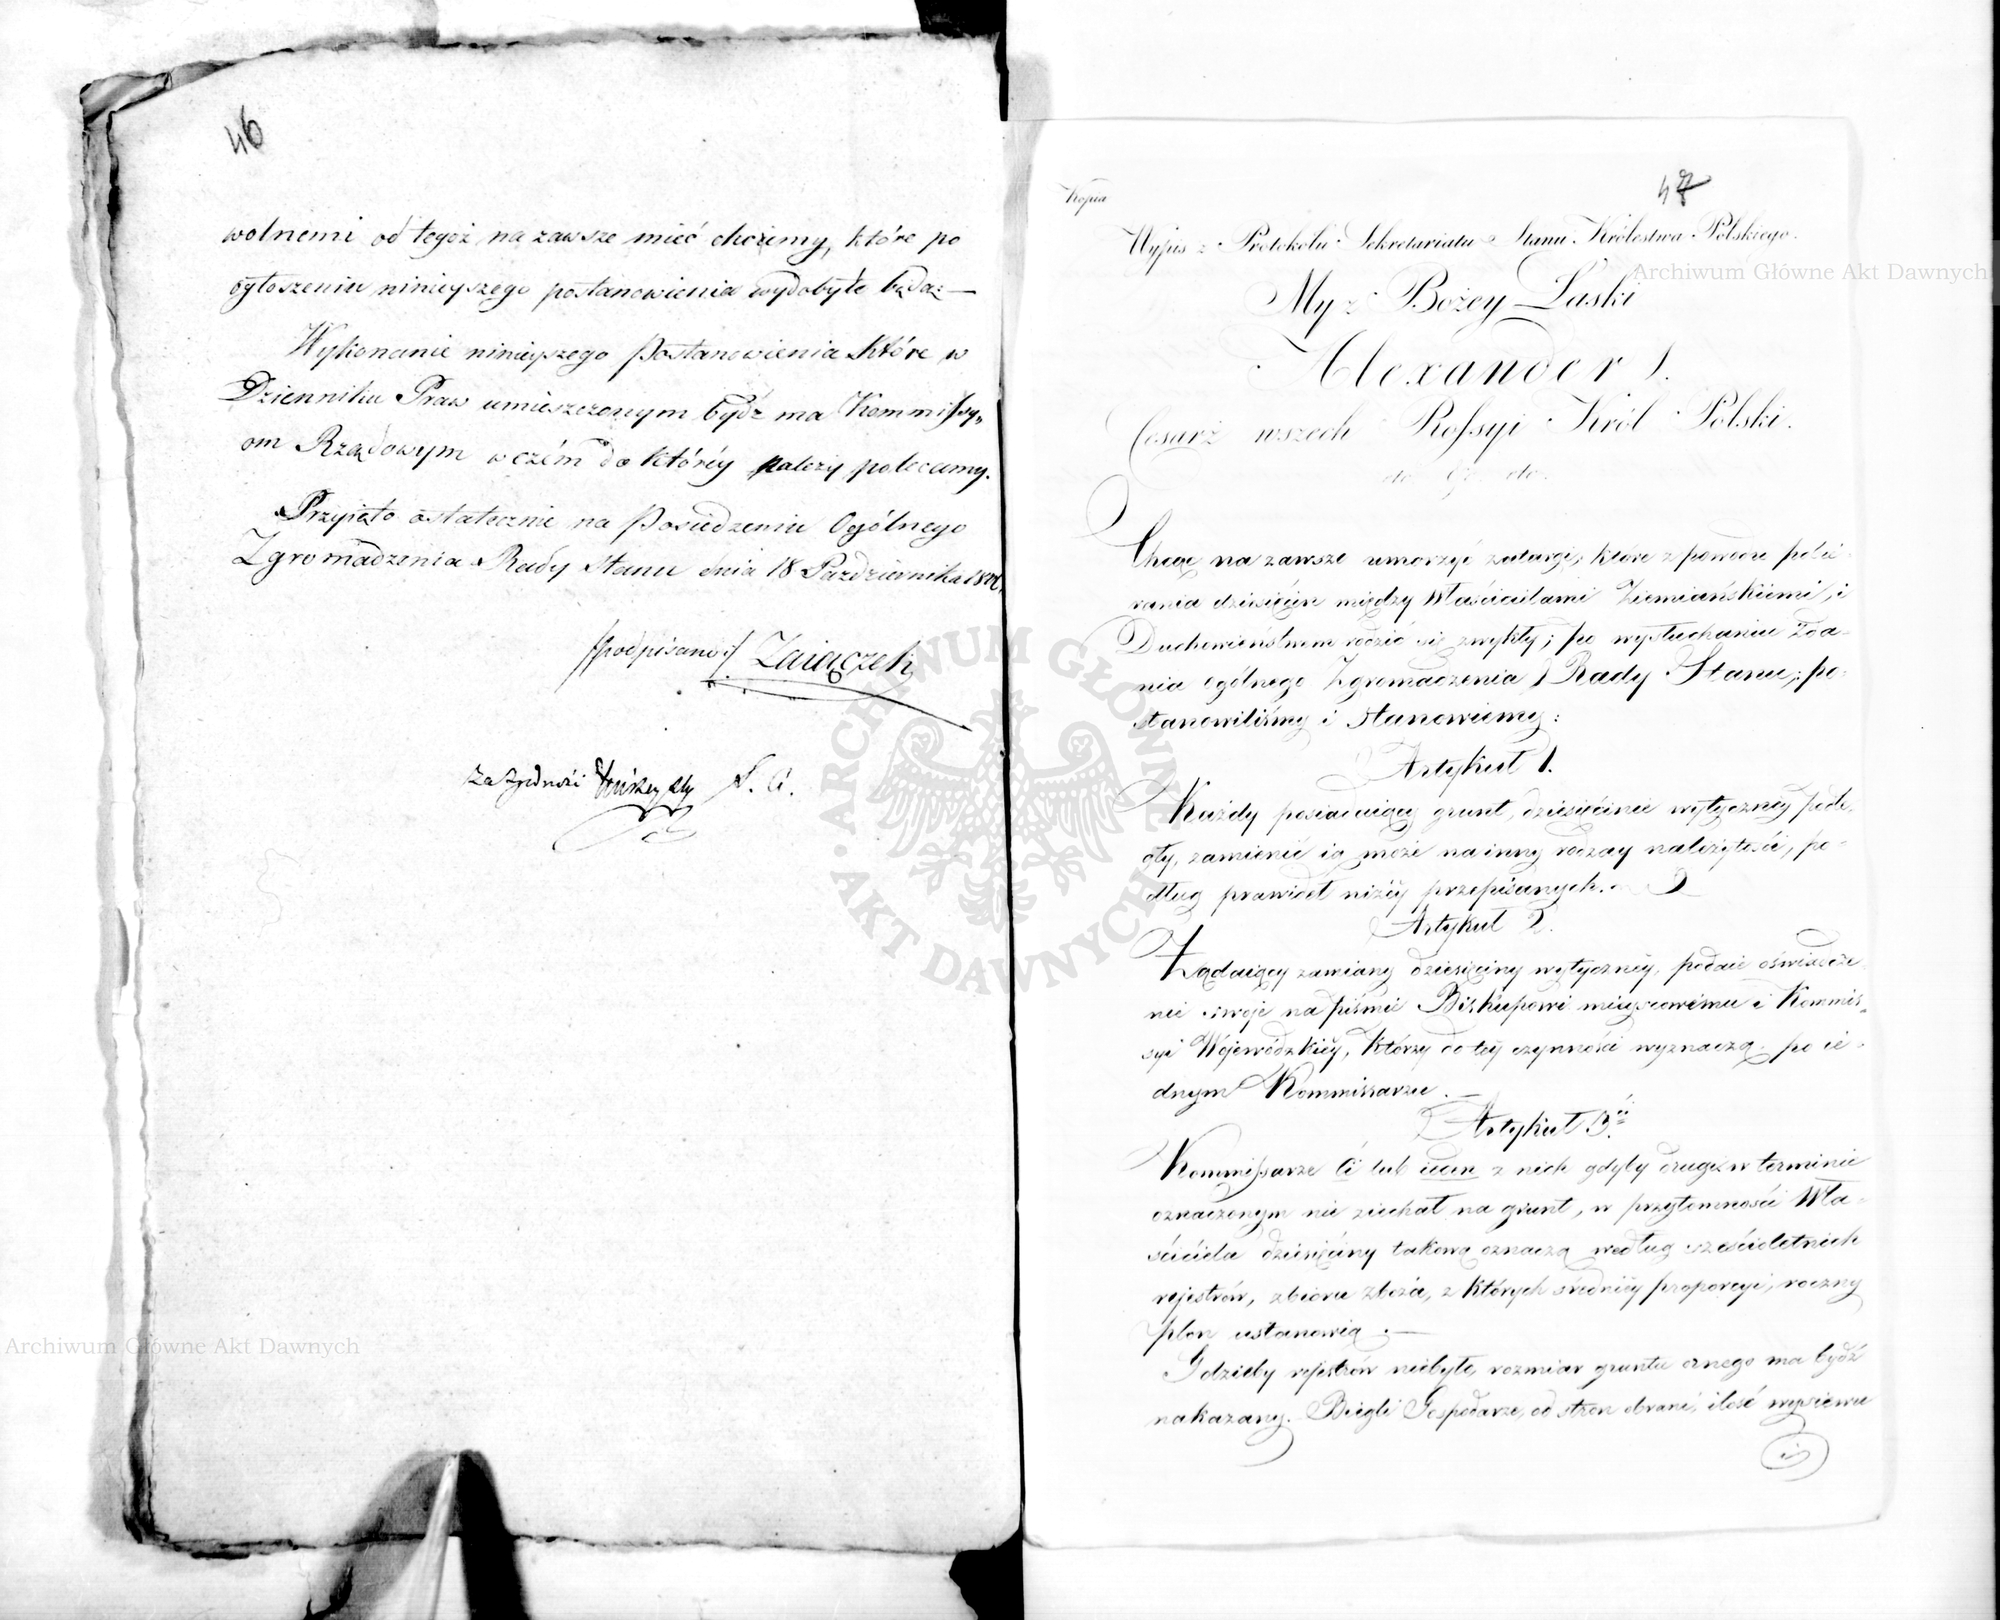 46
wolnemi od tegoż na zawsze mieć chcemy, które po
ogłoszeniu ninieyszego postanowienia wydobyte będą —
Wykonanie ninieyszego Postanowienia które w
Dzienniku Praw umieszczonym bydź ma Kommissy„
om Rządowym w czém do któréy należy polecamy.
Przyięto ostatecznie na Posiedzeniu Ogólnego
Zgromadzenia Rady Stanu dnia 18 Października
/podpisano/ Zaiączek
Za zgodność
47
Kopia
Wypis z Protokółu Sekretariatu Stanu Królestwa Polskiego.
My z Bożey Łaski
Alexander I.
Cesarz wszech Rossyi Król Polski.
etc etc etc.
Chcąc na zawsze umorzyć zatargi, które z powodu pobie-
rania dziesięcin między Właścicielami Ziemiańskiemi, i
Duchowieństwem rodzić się zwykły; po wysłuchaniu Zda-
nia ogólnego Zgromadzenia Rady Stanu; po-
stanowiliśmy i Stanowiemy:
Artykuł 1.
Każdy posiadaiący grunt, dziesięcinie wytyczney podle-
gły, zamienić ią może na inny rodzay należytości, po-
dług prawideł niżéy przepisanych.
Artykuł 2.
Żądaiący zamiany dziesięciny wytycznéy, podaie oświadcze-
nie swoje na piśmie Biskupowi mieyscowému i Kommis„
syi Wojewódzkiéy, którzy do téy czynności wyznaczą po ie-
dnym Kommissarzu. —
Artykuł 3.
Kommissarze Ci lub ieden z nich gdyby drugi w terminie
oznaczonym nie ziechał na grunt, w przytomności Wła-
ściciela dziesięciny takową oznaczą według sześcioletnich
rejestrów, zbioru zboża, z których średniéy proporcyi, roczny
plon ustanowią. —
Gdzieby rejestrów niebyło, rozmiar gruntu ornego ma bydź
nakazany. Biegli Gospodarze, od stron obrani, ilość wysiewu
Archiwum Główne Akt Dawnych
Archiwum Główne Akt Dawnych
ARCHIWUM GŁÓWNE AKT DAWNYCH